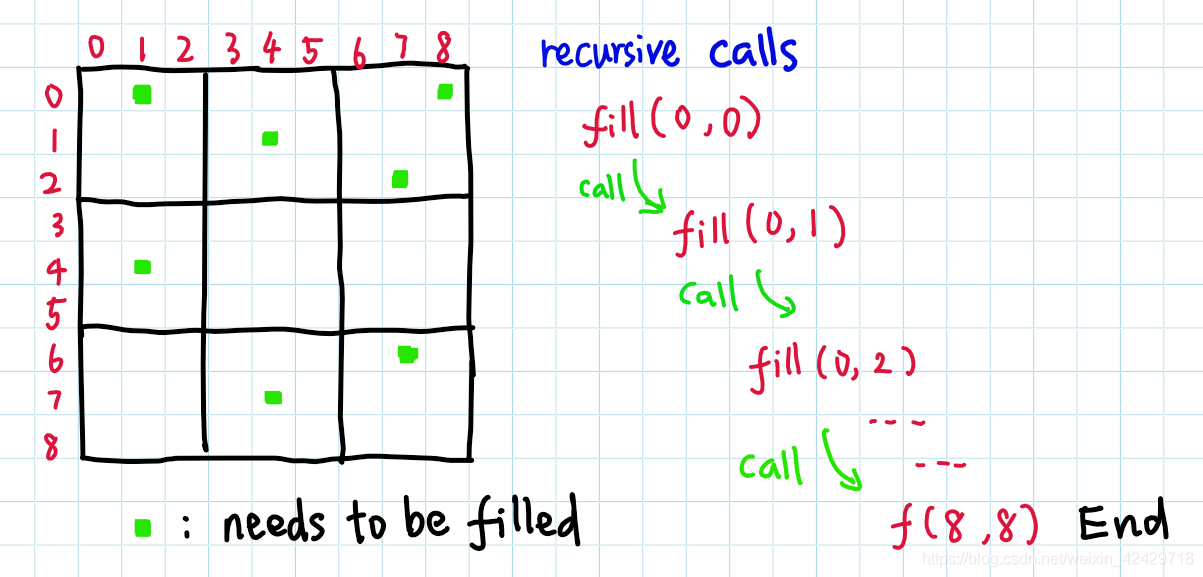 0 1 2 3 4 5 6 7 8
recursive calls
0
1
2
3
4
5
6
7
8
fill(0,0)
call
fill(0,1)
call
fill(0,2)
---
call
---
f(8,8) End
: needs to be filled
https://blog.csdn.net/weixin_42429718